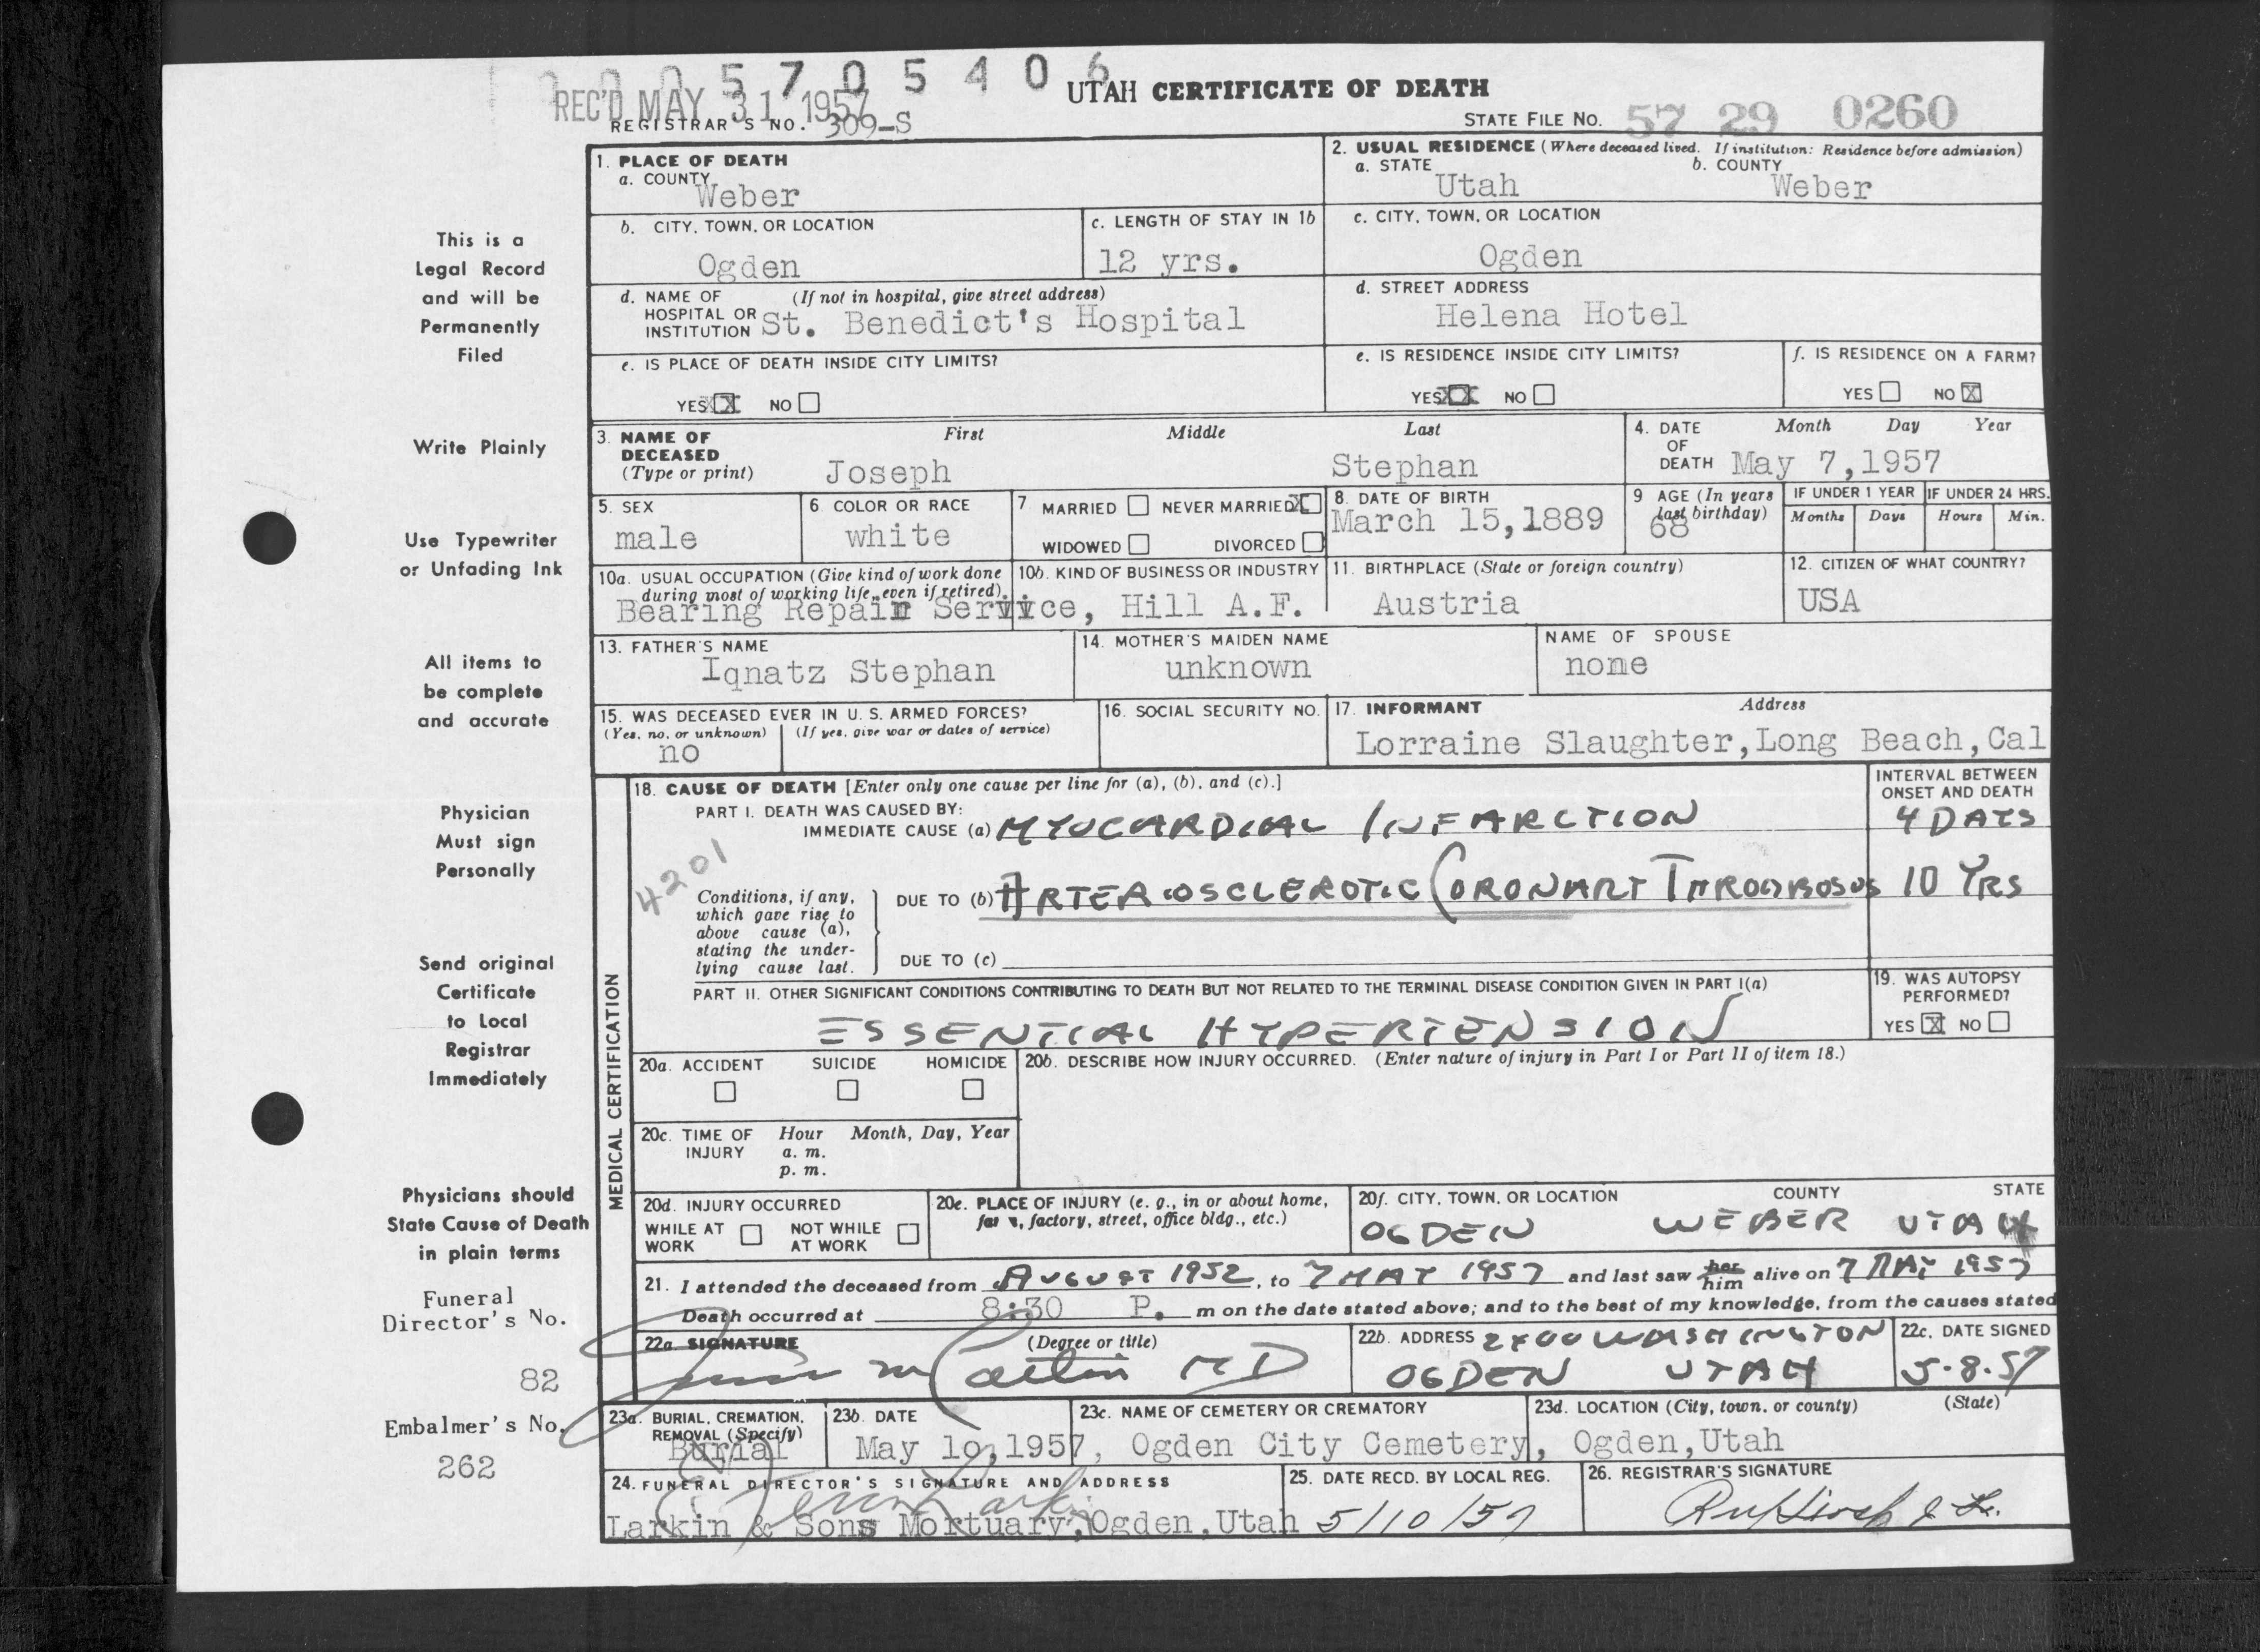 005705406
REC'D MAY 31 1957
UTAH CERTIFICATE OF DEATH
REGISTRAR'S NO. 309-S
STATE FILE NO. 57 29 0260
This is a
Legal Record
and will be
Permanently
Filed
Write Plainly
Use Typewriter
or Unfading Ink
All items to
be complete
and accurate
Physician
Must sign
Personally
Send original
Certificate
to Local
Registrar
Immediately
Physicians should
State Cause of Death
in plain terms
Funeral
Director's No.
82
Embalmer's No.
262
1. PLACE OF DEATH
a. COUNTY
Weber
2. USUAL RESIDENCE (Where deceased lived. If institution: Residence before admission)
a. STATE b. COUNTY
Utah Weber
b. CITY, TOWN, OR LOCATION
Ogden
c. LENGTH OF STAY IN 1b
12 yrs.
c. CITY, TOWN, OR LOCATION
Ogden
d. NAME OF (If not in hospital, give street address)
HOSPITAL OR
INSTITUTION St. Benedict's Hospital
d. STREET ADDRESS
Helena Hotel
e. IS PLACE OF DEATH INSIDE CITY LIMITS?
YES X NO
e. IS RESIDENCE INSIDE CITY LIMITS?
YES X NO
f. IS RESIDENCE ON A FARM?
YES NO X
3. NAME OF DECEASED
(Type or print)
First Middle Last
Joseph Stephan
4. DATE OF DEATH
Month Day Year
May 7,1957
5. SEX
male
6. COLOR OR RACE
white
7 MARRIED NEVER MARRIED X
WIDOWED DIVORCED
8. DATE OF BIRTH
March 15,1889
9 AGE (In years
last birthday)
68
IF UNDER 1 YEAR IF UNDER 24 HRS.
Months Days Hours Min.
10a. USUAL OCCUPATION (Give kind of work done
during most of working life, even if retired)
10b. KIND OF BUSINESS OR INDUSTRY
Bearing Repair Service, Hill A.F.
11. BIRTHPLACE (State or foreign country)
Austria
12. CITIZEN OF WHAT COUNTRY?
USA
13. FATHER'S NAME
Iqnatz Stephan
14. MOTHER'S MAIDEN NAME
unknown
NAME OF SPOUSE
none
15. WAS DECEASED EVER IN U. S. ARMED FORCES?
(Yes, no, or unknown) (If yes, give war or dates of service)
no
16. SOCIAL SECURITY NO.
17. INFORMANT Address
Lorraine Slaughter,Long Beach,Cal
MEDICAL CERTIFICATION
18. CAUSE OF DEATH [Enter only one cause per line for (a), (b), and (c).]
INTERVAL BETWEEN
ONSET AND DEATH
PART I. DEATH WAS CAUSED BY:
IMMEDIATE CAUSE (a) MYOCARDIAL INFARCTION 4 DAYS
4201
Conditions, if any,
which gave rise to
above cause (a),
stating the under-
lying cause last.
DUE TO (b) ARTERIOSCLEROTIC CORONARY THROMBOSIS 10 YRS
DUE TO (c)
PART II. OTHER SIGNIFICANT CONDITIONS CONTRIBUTING TO DEATH BUT NOT RELATED TO THE TERMINAL DISEASE CONDITION GIVEN IN PART I(a)
ESSENTIAL HYPERTENSION
19. WAS AUTOPSY
PERFORMED?
YES X NO
20a. ACCIDENT SUICIDE HOMICIDE
20b. DESCRIBE HOW INJURY OCCURRED. (Enter nature of injury in Part I or Part II of item 18.)
20c. TIME OF INJURY
Hour Month, Day, Year
a. m.
p. m.
20d. INJURY OCCURRED
WHILE AT WORK NOT WHILE AT WORK
20e. PLACE OF INJURY (e. g., in or about home,
factory, street, office bldg., etc.)
20f. CITY, TOWN, OR LOCATION COUNTY STATE
OGDEN WEBER UTAH
21. I attended the deceased from AUGUST 1952, to 7 MAY 1957 and last saw her him alive on 7 MAY 1957
Death occurred at 8:30 P. m on the date stated above; and to the best of my knowledge, from the causes stated
22a SIGNATURE (Degree or title)
MD
22b. ADDRESS 2400 WASHINGTON
OGDEN UTAH
22c. DATE SIGNED
5-8-57
23a. BURIAL, CREMATION,
REMOVAL (Specify)
Burial
23b. DATE
May 10,1957,
23c. NAME OF CEMETERY OR CREMATORY
Ogden City Cemetery,
23d. LOCATION (City, town, or county) (State)
Ogden,Utah
24. FUNERAL DIRECTOR'S SIGNATURE AND ADDRESS
Larkin & Sons Mortuary,Ogden,Utah
25. DATE RECD. BY LOCAL REG.
5/10/57
26. REGISTRAR'S SIGNATURE